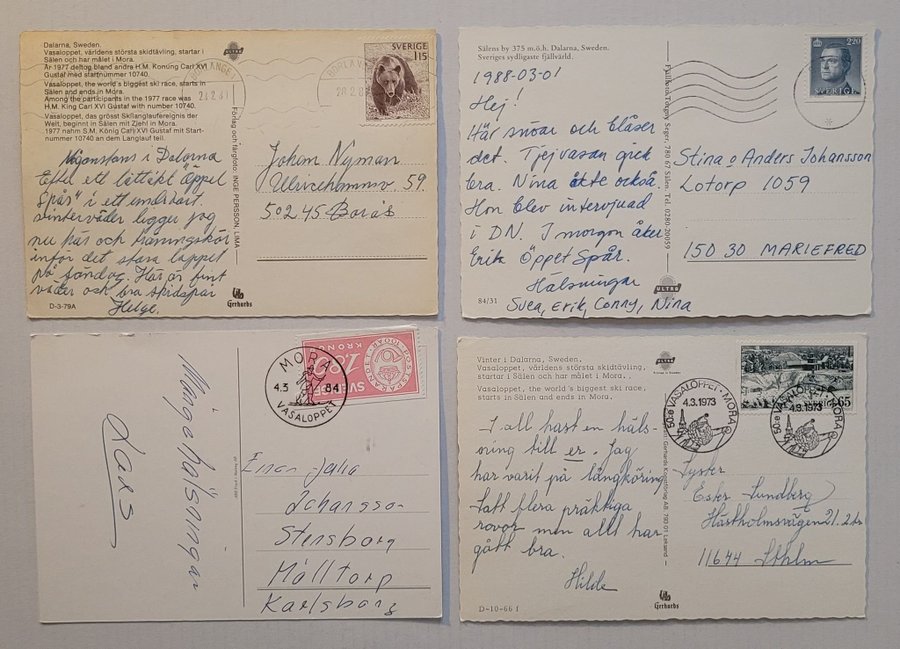 Dalarna, Sweden.
Vasaloppet, världens största skidtävling, startar i
Sälen och har målet i Mora.
År 1977 deltog bland andra H.M. Konung Carl XVI
Gustaf med startnummer 10740.
Vasaloppet, the world's biggest ski race, starts in
Sälen and ends in Mora.
Among the participants in the 1977 race was
H.M. King Carl XVI Gustaf with number 10740.
Vasaloppet, das grösst Skilanglaufereignis der
Welt, beginnt in Sälen mit Ziehl in Mora.
1977 nahm S.M. König Carl XVI Gustaf mit Start-
nummer 10740 an dem Langlauf teil.
ULTRA
BORLÄNGE 1
SVERIGE
115
Någonstans i Dalarna
Efter ett lättåkt "Öppel
Spår" i ett underbart
vinterväder ligger jag
nu här och träningskör
inför det stora loppet
på söndag. Här är fint
väder och bra skidspår
Helge.
Förlag och färgfoto: INGE PERSSON, LIMA
Johan Nyman
59
502 45 Borås
D-3-79A
Gerhards
Sälens by 375 m.ö.h. Dalarna, Sweden.
Sveriges sydligaste fjällvärld.
220
SVERIGE
1988-03-01
Hej!
Här snöar och blåser
det. Tjejvasan gick
bra. Nina åkte också.
Hon blev intervjuad
i DN. I morgon åker
Erik Öppet Spår.
Hälsningar
Svea, Erik, Conny, Nina
Fjällfoto: Torgny Seger, 780 67 Sälen. Tel. 0280-20059
Stina o Anders Johansson
Lotorp 1059
150 30 MARIEFRED
ULTRA
84/31
MORA
4.3 84
VASALOPPET
SVERIGE
1.80
KRONOR
Många hälsningar
Lars
Johansson
Stensborg
Mölltorp
Karlsborg
Vinter i Dalarna, Sweden.
Vasaloppet, världens största skidtävling,
startar i Sälen och har målet i Mora.
Vasaloppet, the world's biggest ski race,
starts in Sälen and ends in Mora.
ULTRA
50:e VASALOPPET • MORA
4.3.1973
50:e VASALOPPET • MORA
4.3.1973
SVERIGE 65
I all hast en häls-
ning till er. Jag
har varit på långköring
Satt flera präktiga
rovor men allt har
gått bra.
Hilde
Gerhards Konstförlag AB, 790 01 Leksand
Syster
Ester Lundberg
Hästholmsvägen 21, 2 tr
11644 Sthlm
D-10-66 I
Gerhards